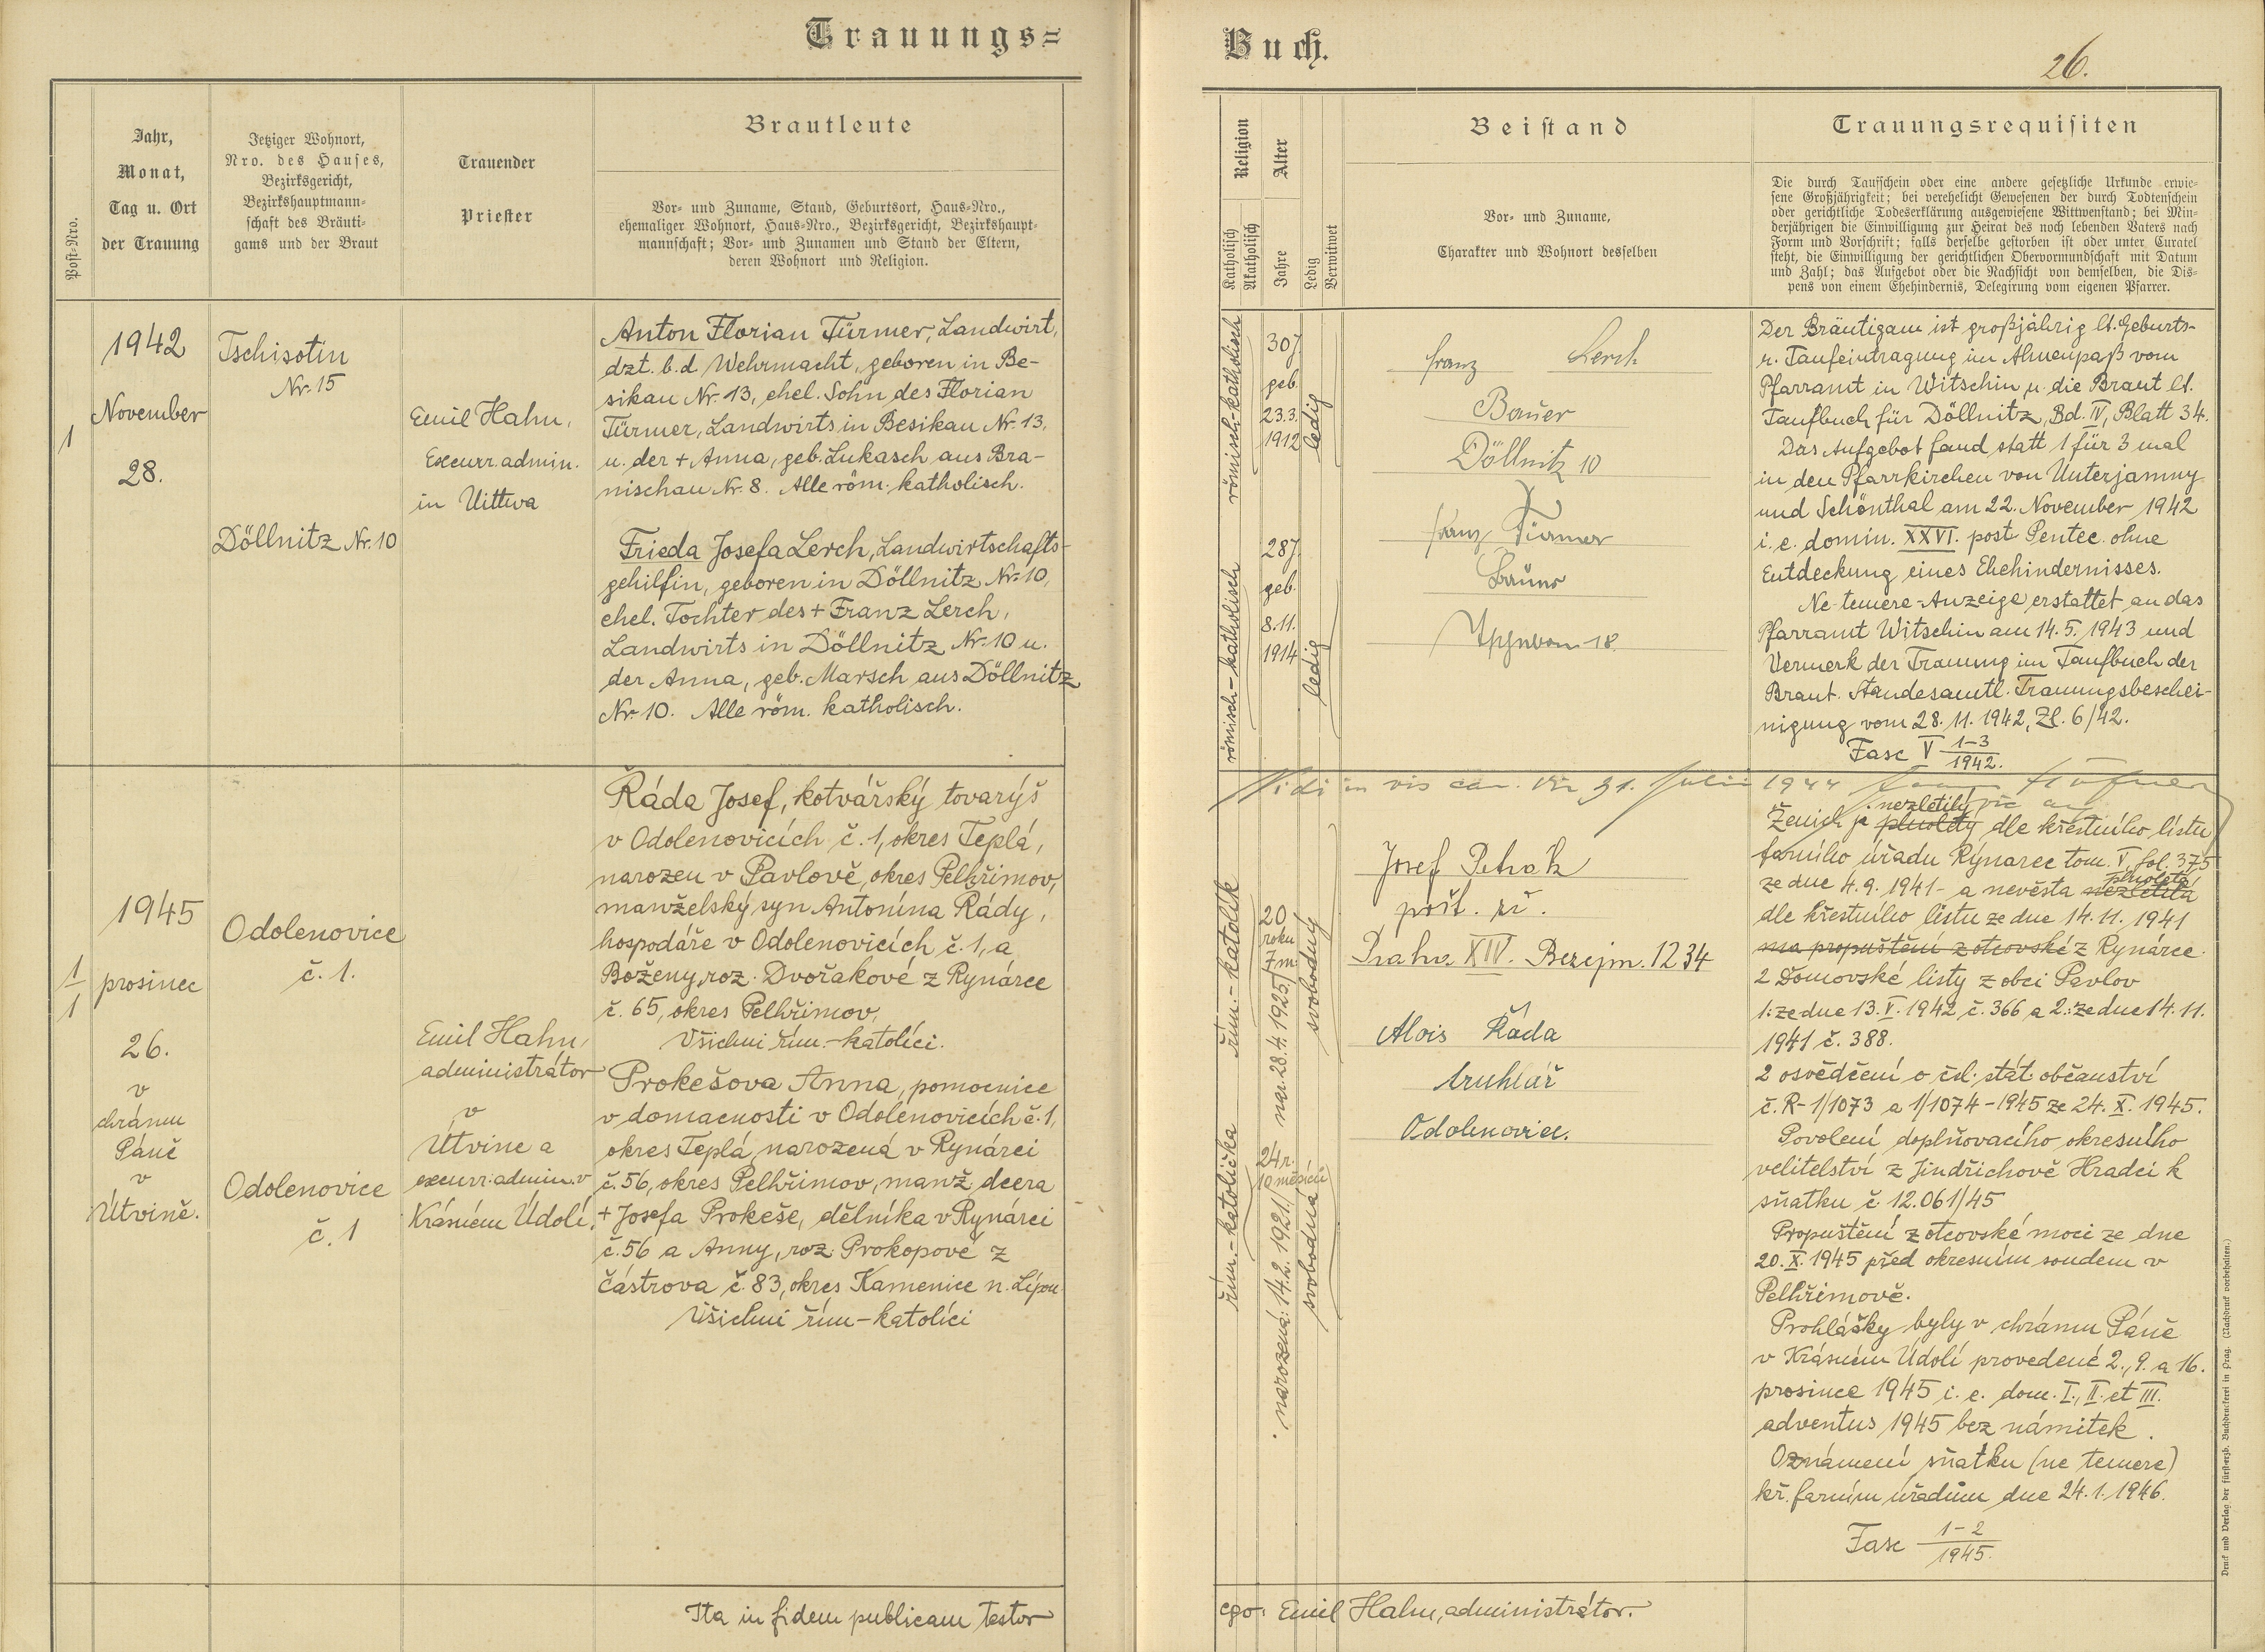 Trauungs=
Post-Nro.
Jahr,
Monat,
Tag u. Ort
der Trauung
Jetziger Wohnort,
Nro. des Hauses,
Bezirksgericht,
Bezirkshauptmann-
schaft des Bräuti-
gams und der Braut
Trauender
Priester
Brautleute
Vor- und Zuname, Stand, Geburtsort, Haus-Nro.,
ehemaliger Wohnort, Haus-Nro., Bezirksgericht, Bezirkshaupt-
mannschaft; Vor- und Zunamen und Stand der Eltern,
deren Wohnort und Religion.
1
1942
November
28.
Tschisotin
Nr. 15
Döllnitz Nr. 10
Emil Hahn,
Excurr. admin.
in Uittwa
Anton Florian Türmer, Landwirt,
dzt. b. d. Wehrmacht, geboren in Be-
sikau Nr. 13, ehel. Sohn des Florian
Türmer, Landwirts in Besikau Nr. 13,
u. der + Anna, geb. Lukasch aus Bra-
nischau Nr. 8. Alle röm. katholisch.
Frieda Josefa Lerch, Landwirtschafts-
gehilfin, geboren in Döllnitz Nr. 10,
ehel. Tochter des + Franz Lerch,
Landwirts in Döllnitz Nr. 10 u.
der Anna, geb. Marsch aus Döllnitz
Nr. 10. Alle röm. katholisch.
1
1
1945
prosinec
26.
v
chrámu
Páně
v
Útvině.
Odolenovice
č. 1.
Odolenovice
č. 1
Emil Hahn,
administrátor
v
Útvine a
excurr. admin. v
Krásném Údolí,
Řáda Josef, kotvářský tovaryš
v Odolenovicích č. 1, okres Teplá,
narozen v Pavlově, okres Pelhřimov,
manželský syn Antonína Řády,
hospodáře v Odolenovicích č. 1, a
Boženy, roz. Dvořakové z Rynárce
č. 65, okres Pelhřimov,
Všichni řím.-katolíci.
Prokešova Anna, pomocnice
v domacnosti v Odolenovicích č. 1,
okres Teplá, narozená v Rynárci
č. 56, okres Pelhřimov, manž. dcera
+ Josefa Prokeše, dělníka v Rynárci
č. 56 a Anny, roz. Prokopové z
Částrova č. 83, okres Kamenice n. Lípou.
Všichni řím-katolíci
Ita in fidem publicam testor
Buch.
26.
Religion
Alter
Katholisch
Akatholisch
Jahre
Ledig
Verwitwet
Beistand
Vor- und Zuname,
Charakter und Wohnort desselben
Trauungsrequisiten
Die durch Taufschein oder eine andere gesetzliche Urkunde erwie-
sene Großjährigkeit; bei verehelicht Gewesenen der durch Todtenschein
oder gerichtliche Todeserklärung ausgewiesene Wittwenstand; bei Min-
derjährigen die Einwilligung zur Heirat des noch lebenden Vaters nach
Form und Vorschrift; falls derselbe gestorben ist oder unter Curatel
steht, die Einwilligung der gerichtlichen Obervormundschaft mit Datum
und Zahl; das Aufgebot oder die Nachsicht von demselben, die Dis-
pens von einem Ehehindernis, Delegirung vom eigenen Pfarrer.
römisch-katholisch
30 J.
geb.
23.3.
1912
ledig
römisch-katholisch
28 J.
geb.
8.11.
1914
ledig
Franz Lerch
Bauer
Döllnitz 10
Franz Türmer
Bauer
18
Der Bräutigam ist großjährig lt. Geburts-
u. Taufeintragung im Ahnenpaß vom
Pfarramt in Witschin u. die Braut lt.
Taufbuch für Döllnitz, Bd. IV, Blatt 34.
Das Aufgebot fand statt 1 für 3 mal
in den Pfarrkirchen von Unterjamny
und Schönthal am 22. November 1942
i. e. domin. XXVI. post Pentec. ohne
Entdeckung eines Ehehindernisses.
Ne-temere-Anzeige erstattet an das
Pfarramt Witschin am 14. 5. 1943 und
Vermerk der Trauung im Taufbuch der
Braut. Standesamtl. Trauungsbeschei-
nigung vom 28. 11. 1942, Zl. 6/42.
Fasc V 1-3
1942.
Vidi in vis can. 31. Julii 1944
řím.-katolík
20
roku
7 m.
nar. 28. 4. 1925
svobodný
řím.-katolička
24 r.
10 měsíců
narozená: 14. 2. 1921
svobodná
Josef Petrak
pošt. zř.
Praha XIV. Bezejm. 1234
Alois Řáda
truhlář
Odolenovice.
nezletilý
Ženich je plnoletý dle křestního listu
farního úřadu Rynarec tom. V, fol. 375
plnoletá
ze dne 4. 9. 1941 - a nevěsta nezletilá
dle křestního listu ze dne 14. 11. 1941
má propuštění z otcovské z Rynárce.
2 Domovské listy z obci Pavlov
1: ze dne 13. V. 1942, č. 366 a 2.: ze dne 14. 11.
1941 č. 388.
2 osvědčení o čsl. stát. občanství
č. R-1/1073 a 1/1074-1945 ze 24. X. 1945.
Povolení doplňovacího okresního
velitelství z Jindřichově Hradci k
sňatku č 12.061/45
Propuštění z otcovské moci ze dne
20. X. 1945 před okresním soudem v
Pelhřimově.
Prohlášky byly v chrámu Páně
v Krásném Údolí provedené 2., 9. a 16.
prosince 1945 i. e. dom. I., II. et III.
adventus 1945 bez námitek.
Oznámení sňatku (ne temere)
kř. farním úřadům dne 24. 1. 1946.
Fasc 1-2
1945.
ego: Emil Hahn, administrátor.
Druck und Verlag der fürsterzb. Buchdruckerei in Prag. (Nachdruck vorbehalten.)